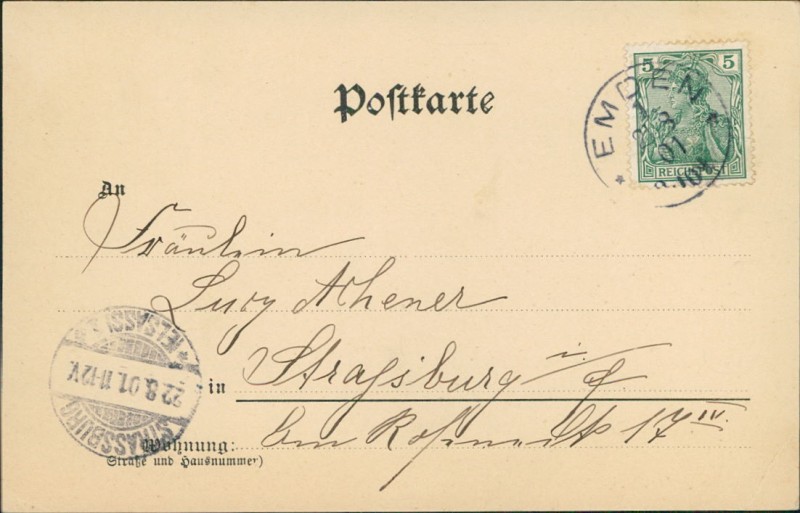 Postkarte
5 5
REICHSPOST
* EMDEN *
8
01
An
Fräulein
Lucy Achener
in Strassburg i. E
Am Roßmarkt 17 IV.
Wohnung:
(Straße und Hausnummer)
STRASSBURG
* (ELSASS) *
22.8.01.11-12V.